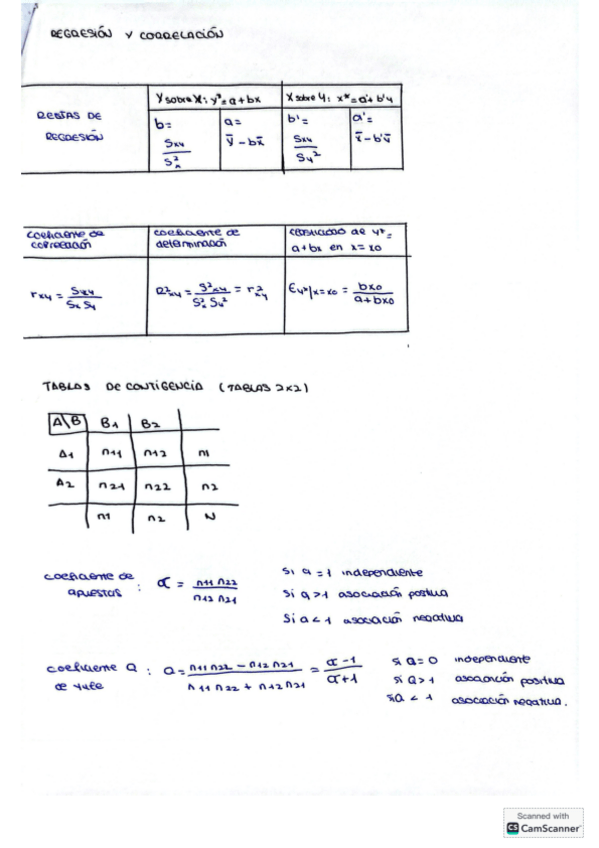 REGRESIÓN Y CORRELACIÓN
RECTAS DE REGRESIÓN
Y sobre X: y* = a + bx
X sobre Y: x* = a' + b'y
b = Sxy / S²x
a = ȳ - bx̄
b' = Sxy / Sy²
a' = x̄ - b'ȳ
coeficiente de correlación
coeficiente de determinación
elasticidad de y* = a + bx en x = x0
rxy = Sxy / Sx Sy
R²xy = S²xy / S²x Sy² = r²xy
Ey*/x=x0 = bx0 / a + bx0
TABLAS DE CONTIGENCIA (TABLAS 2x2)
A\B B1 B2
A1 n11 n12 n1
A2 n21 n22 n2
n1 n2 N
coeficiente de apuestas : α = n11 n22 / n12 n21
Si α = 1 independiente
Si α > 1 asociación positiva
Si α < 1 asociación negativa
coeficiente Q de Yule : Q = n11 n22 - n12 n21 / n11 n22 + n12 n21 = α - 1 / α + 1
si Q = 0 independiente
si Q > 1 asociación positiva
si Q < 1 asociación negativa.
Scanned with
CS CamScanner